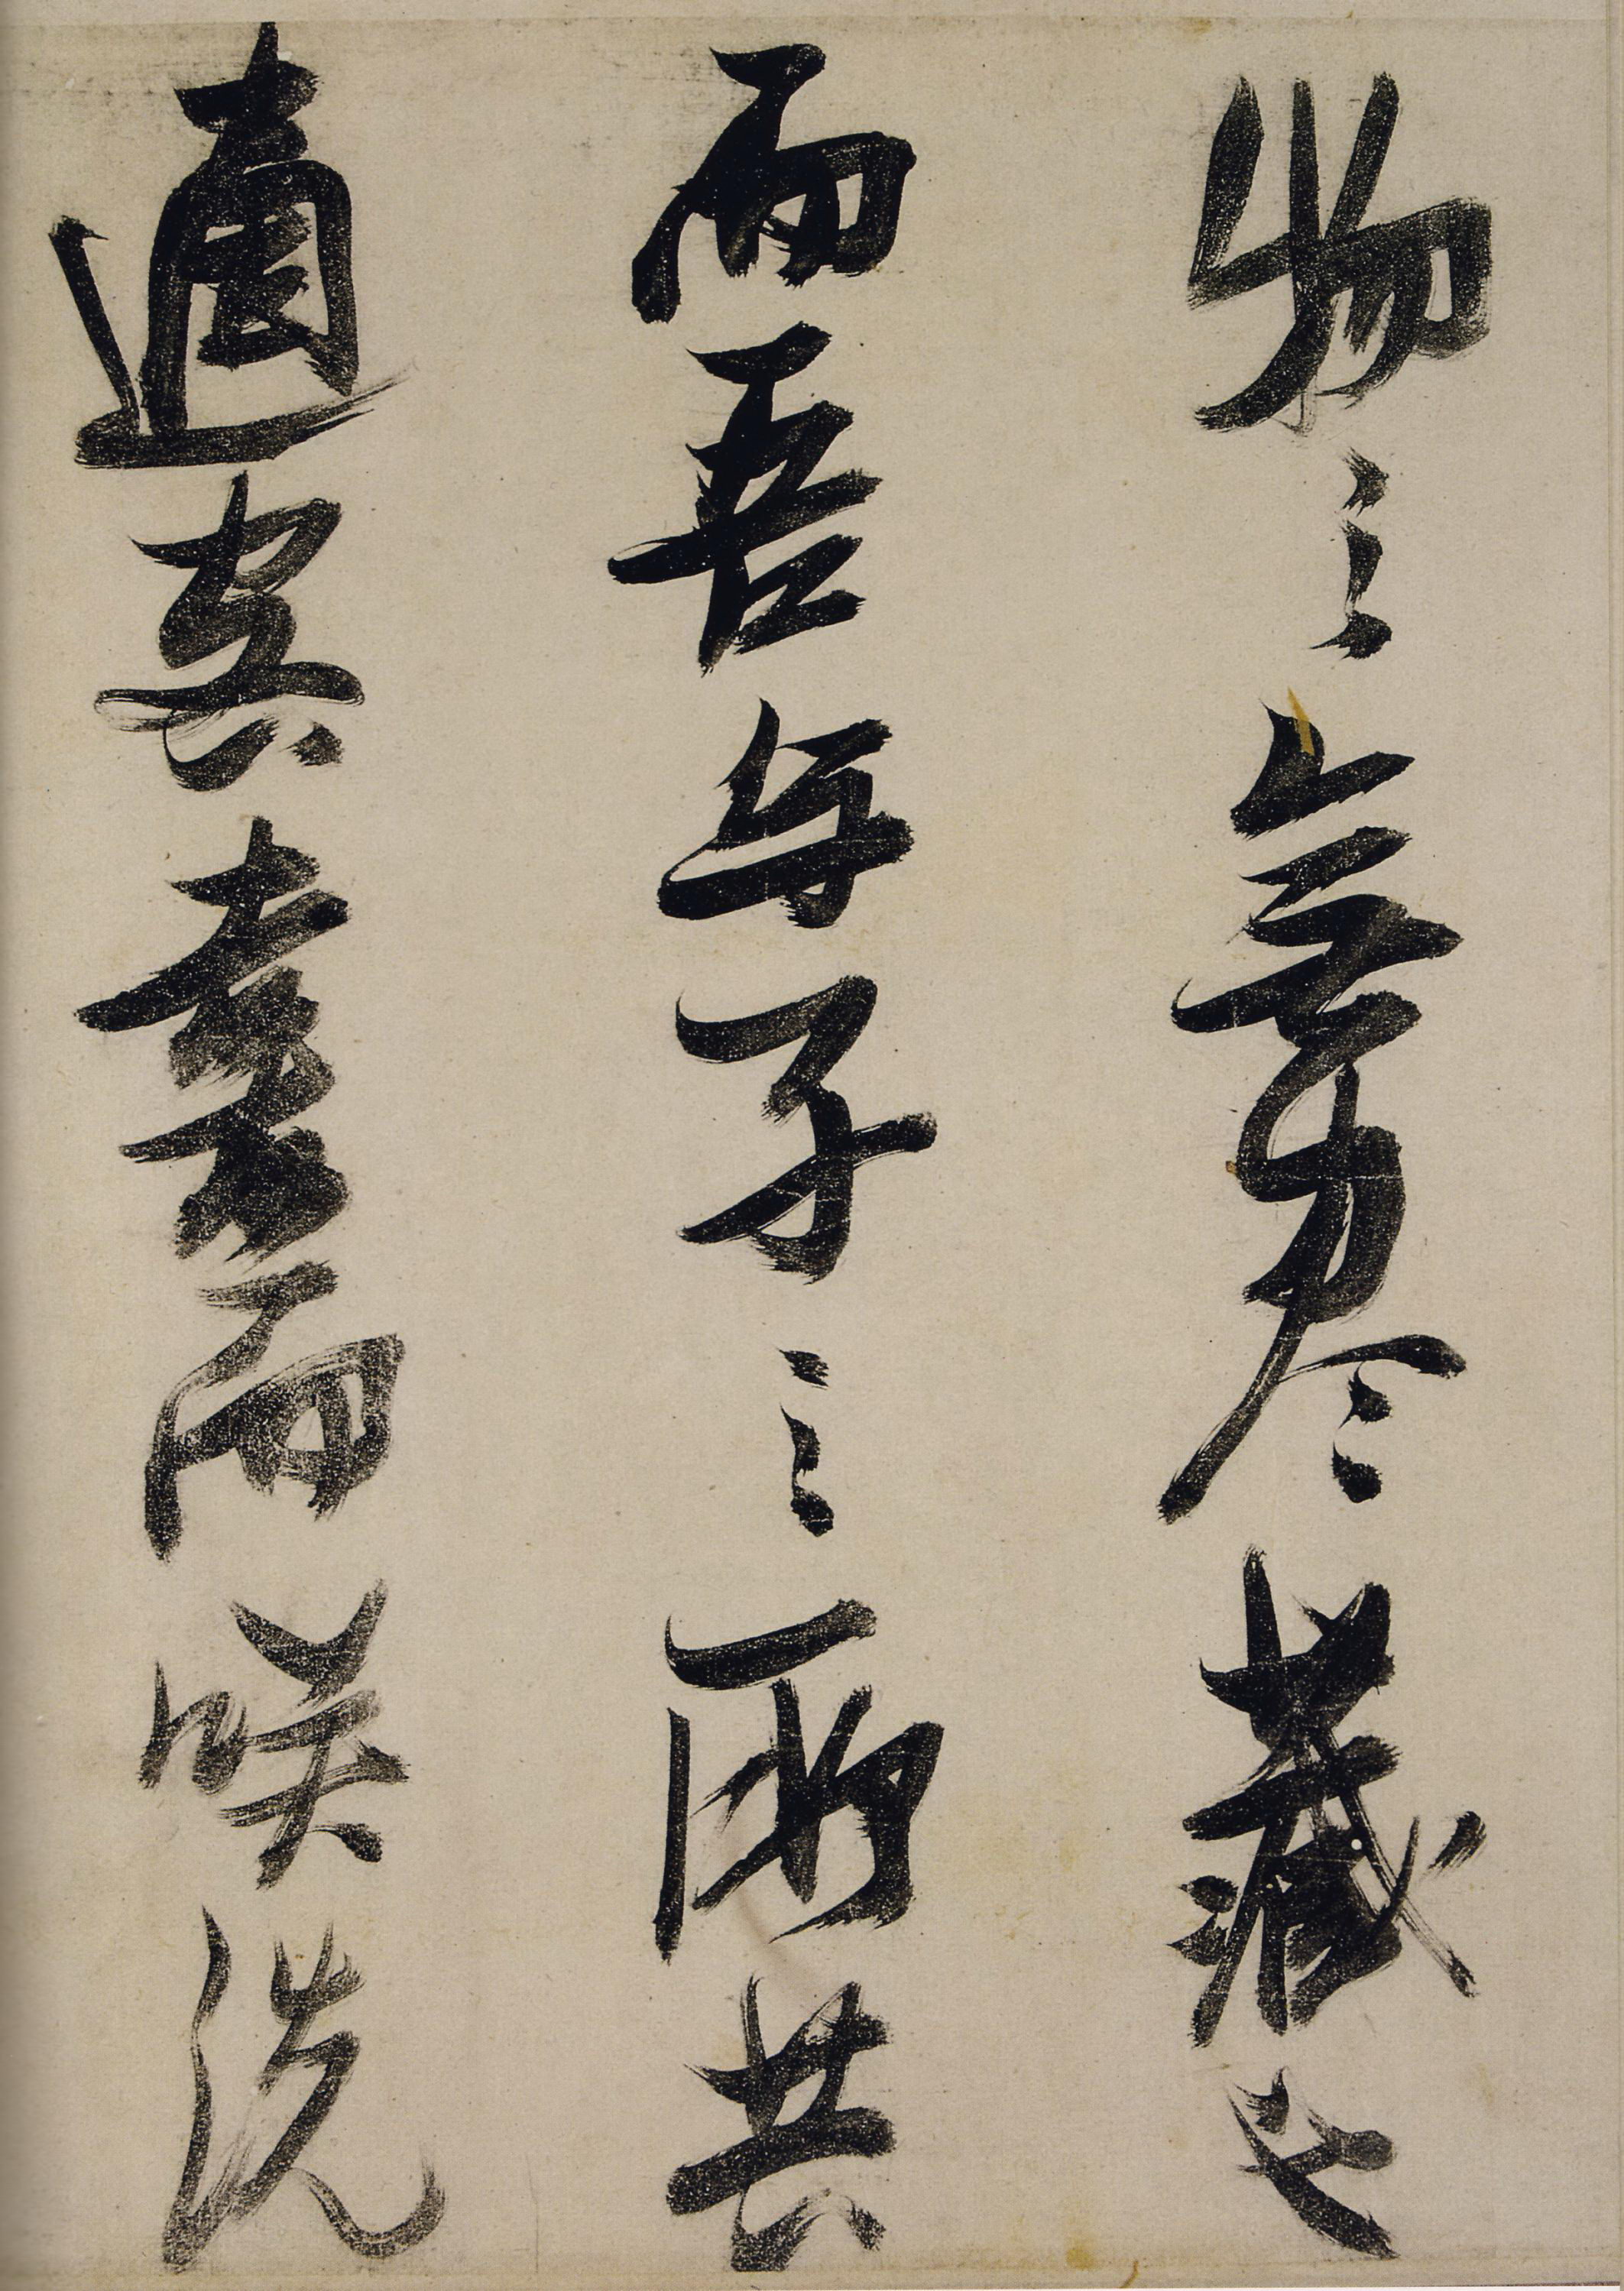 物之無尽藏也
而吾与子之所共
適客喜而咲洗